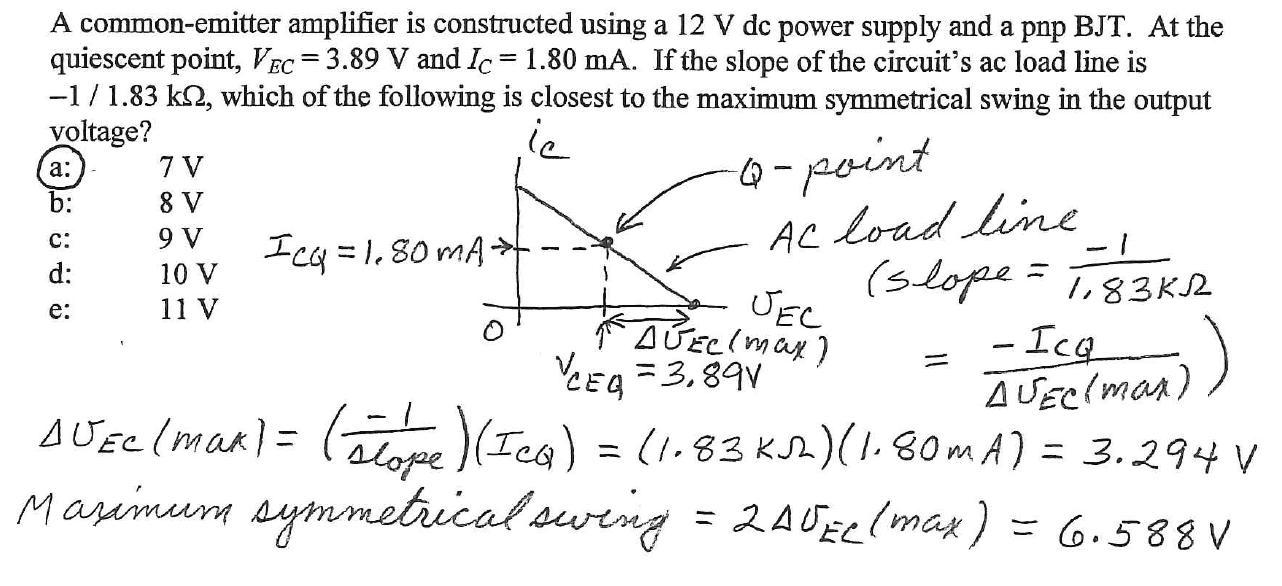 A common-emitter amplifier is constructed using a 12 V dc power supply and a pnp BJT. At the
quiescent point, V_EC = 3.89 V and I_C = 1.80 mA. If the slope of the circuit's ac load line is
–1 / 1.83 kΩ, which of the following is closest to the maximum symmetrical swing in the output
voltage?
a: 7 V
b: 8 V
c: 9 V
d: 10 V
e: 11 V
i_C
Q-point
AC load line
I_CQ = 1.80 mA
(slope = -1 / 1.83KΩ
= -I_CQ / Δv_EC(max))
v_EC
0
Δv_EC(max)
V_CEQ = 3.89V
Δv_EC(max) = (-1 / slope)(I_CQ) = (1.83 KΩ)(1.80 mA) = 3.294 V
Maximum symmetrical swing = 2Δv_EC(max) = 6.588 V